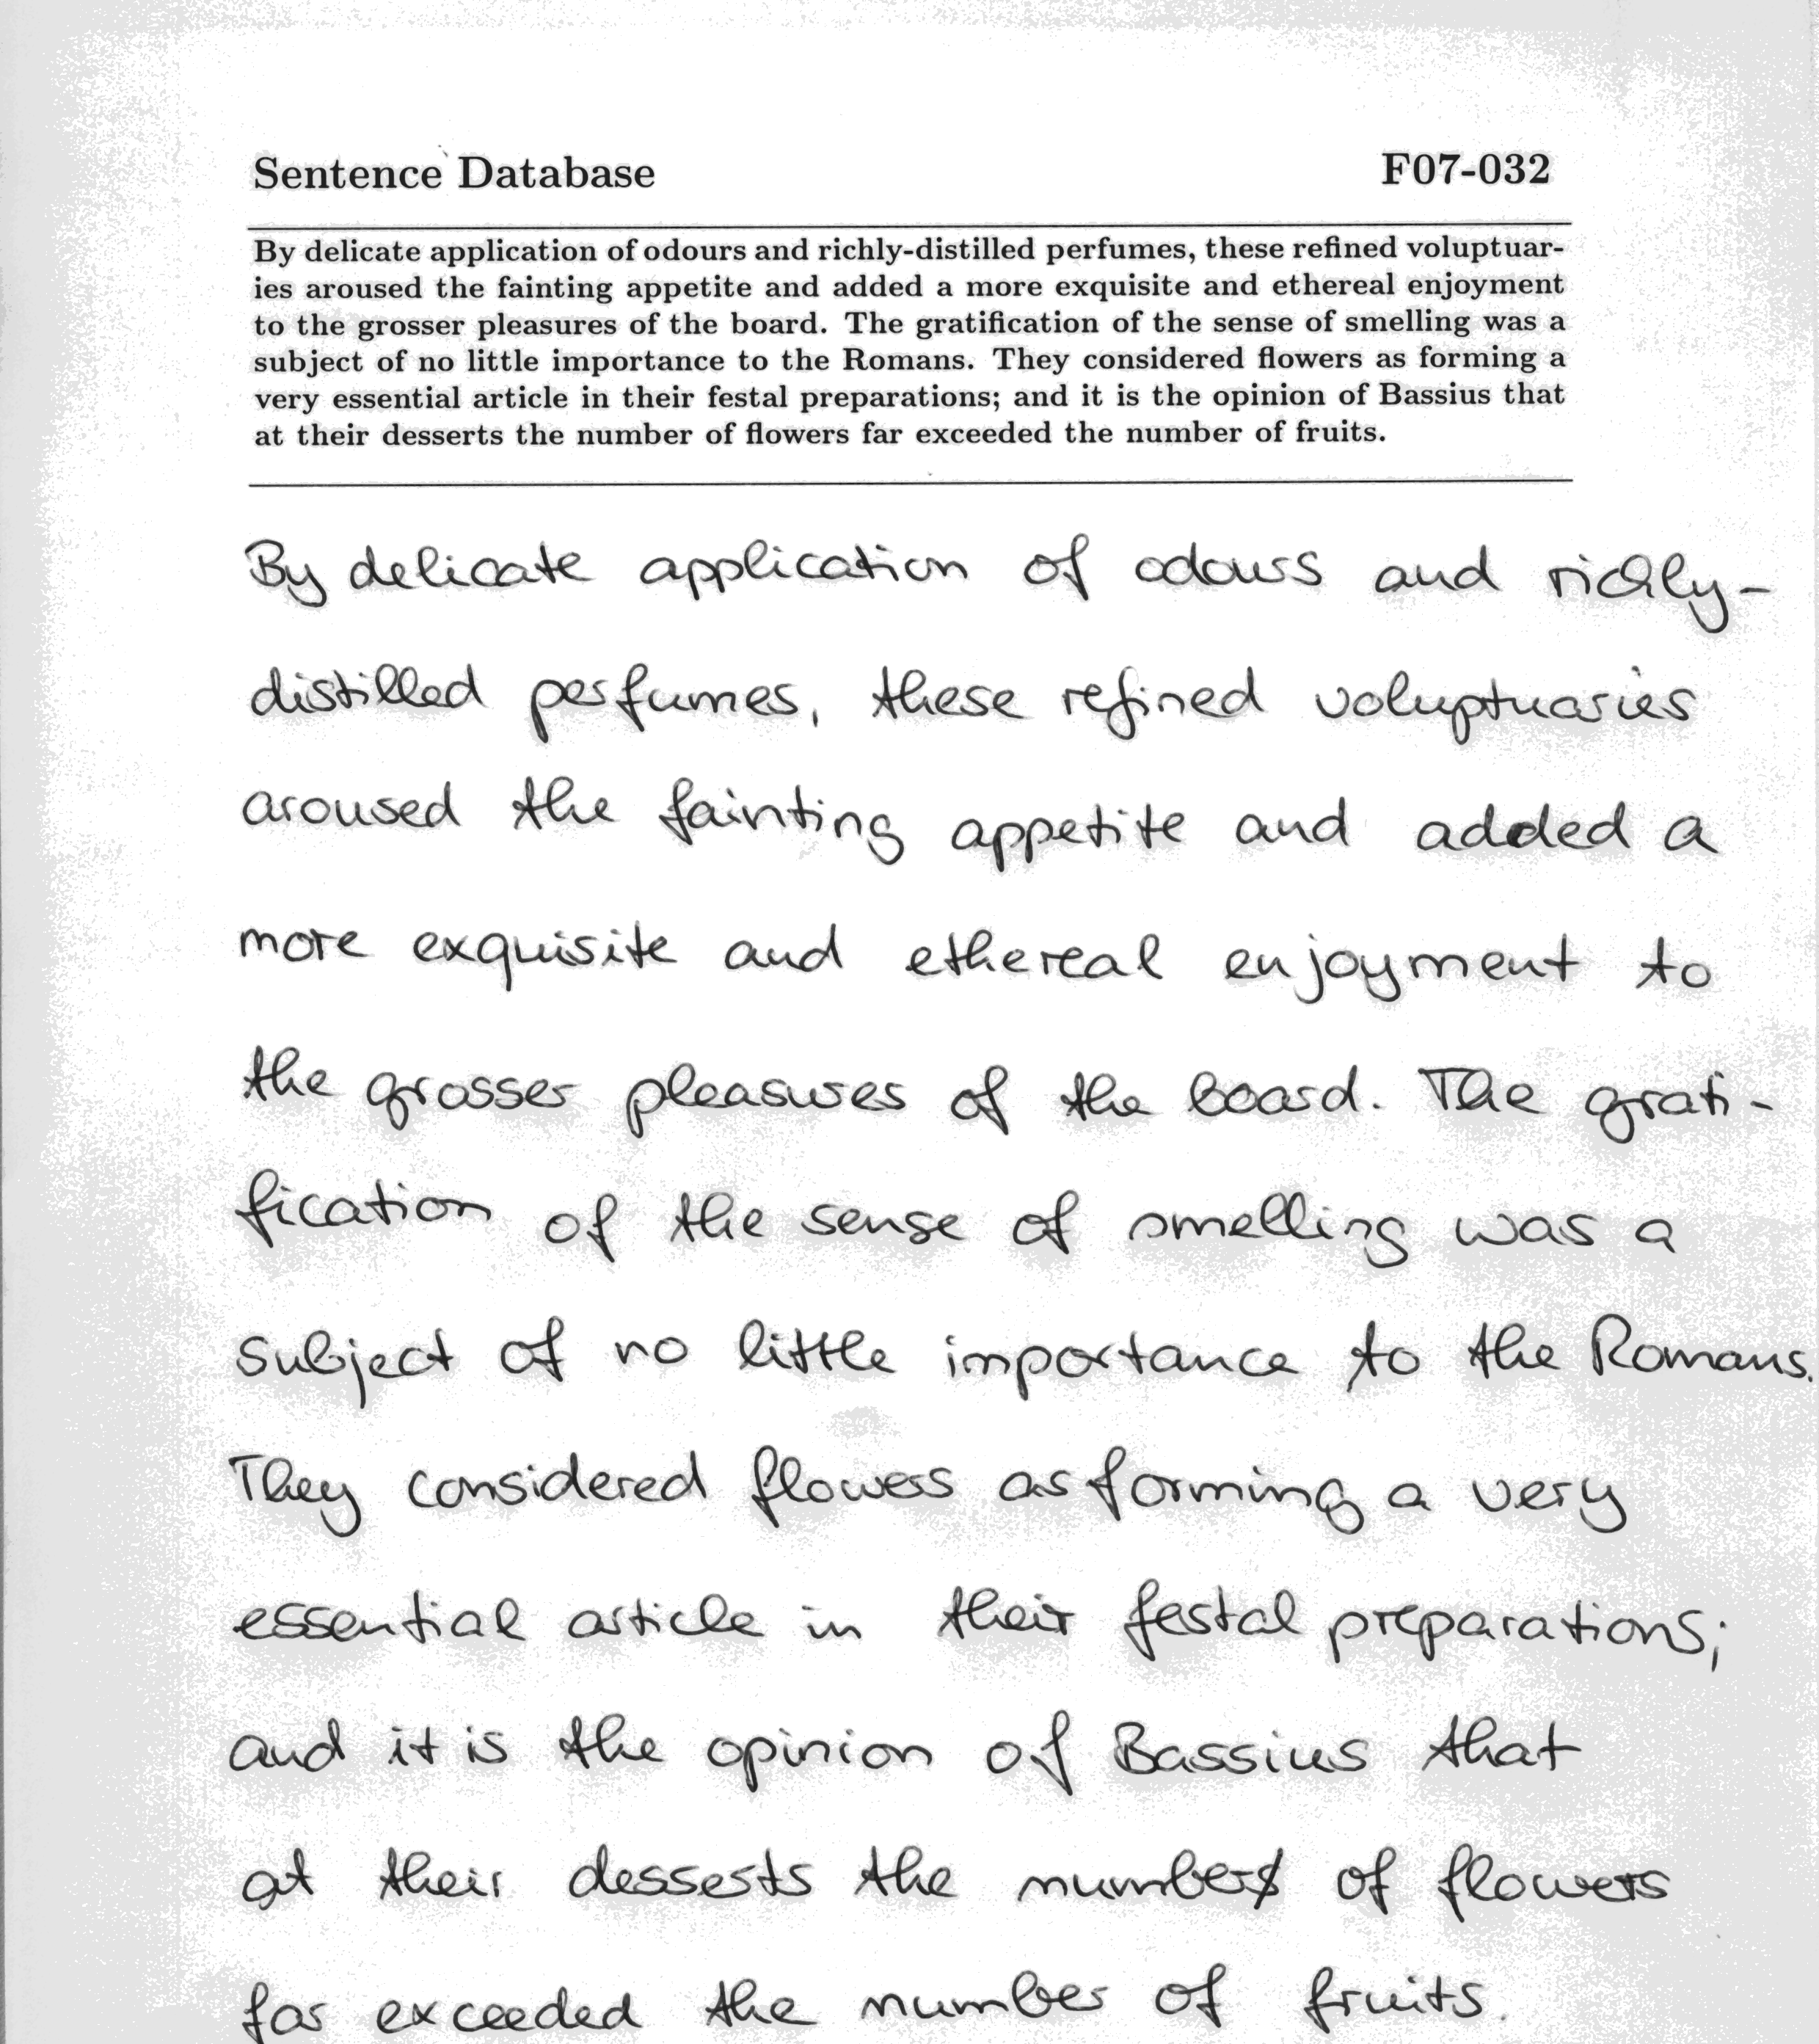 Sentence Database F07-032
By delicate application of odours and richly-distilled perfumes, these refined voluptuar-
ies aroused the fainting appetite and added a more exquisite and ethereal enjoyment
to the grosser pleasures of the board. The gratification of the sense of smelling was a
subject of no little importance to the Romans. They considered flowers as forming a
very essential article in their festal preparations; and it is the opinion of Bassius that
at their desserts the number of flowers far exceeded the number of fruits.
By delicate application of odours and richly-
distilled perfumes, these refined voluptuaries
aroused the fainting appetite and added a
more exquisite and ethereal enjoyment to
the grosser pleasures of the board. The grati-
fication of the sense of smelling was a
subject of no little importance to the Romans.
They considered flowers as forming a very
essential article in their festal preparations;
and it is the opinion of Bassius that
at their desserts the number of flowers
far exceeded the number of fruits.